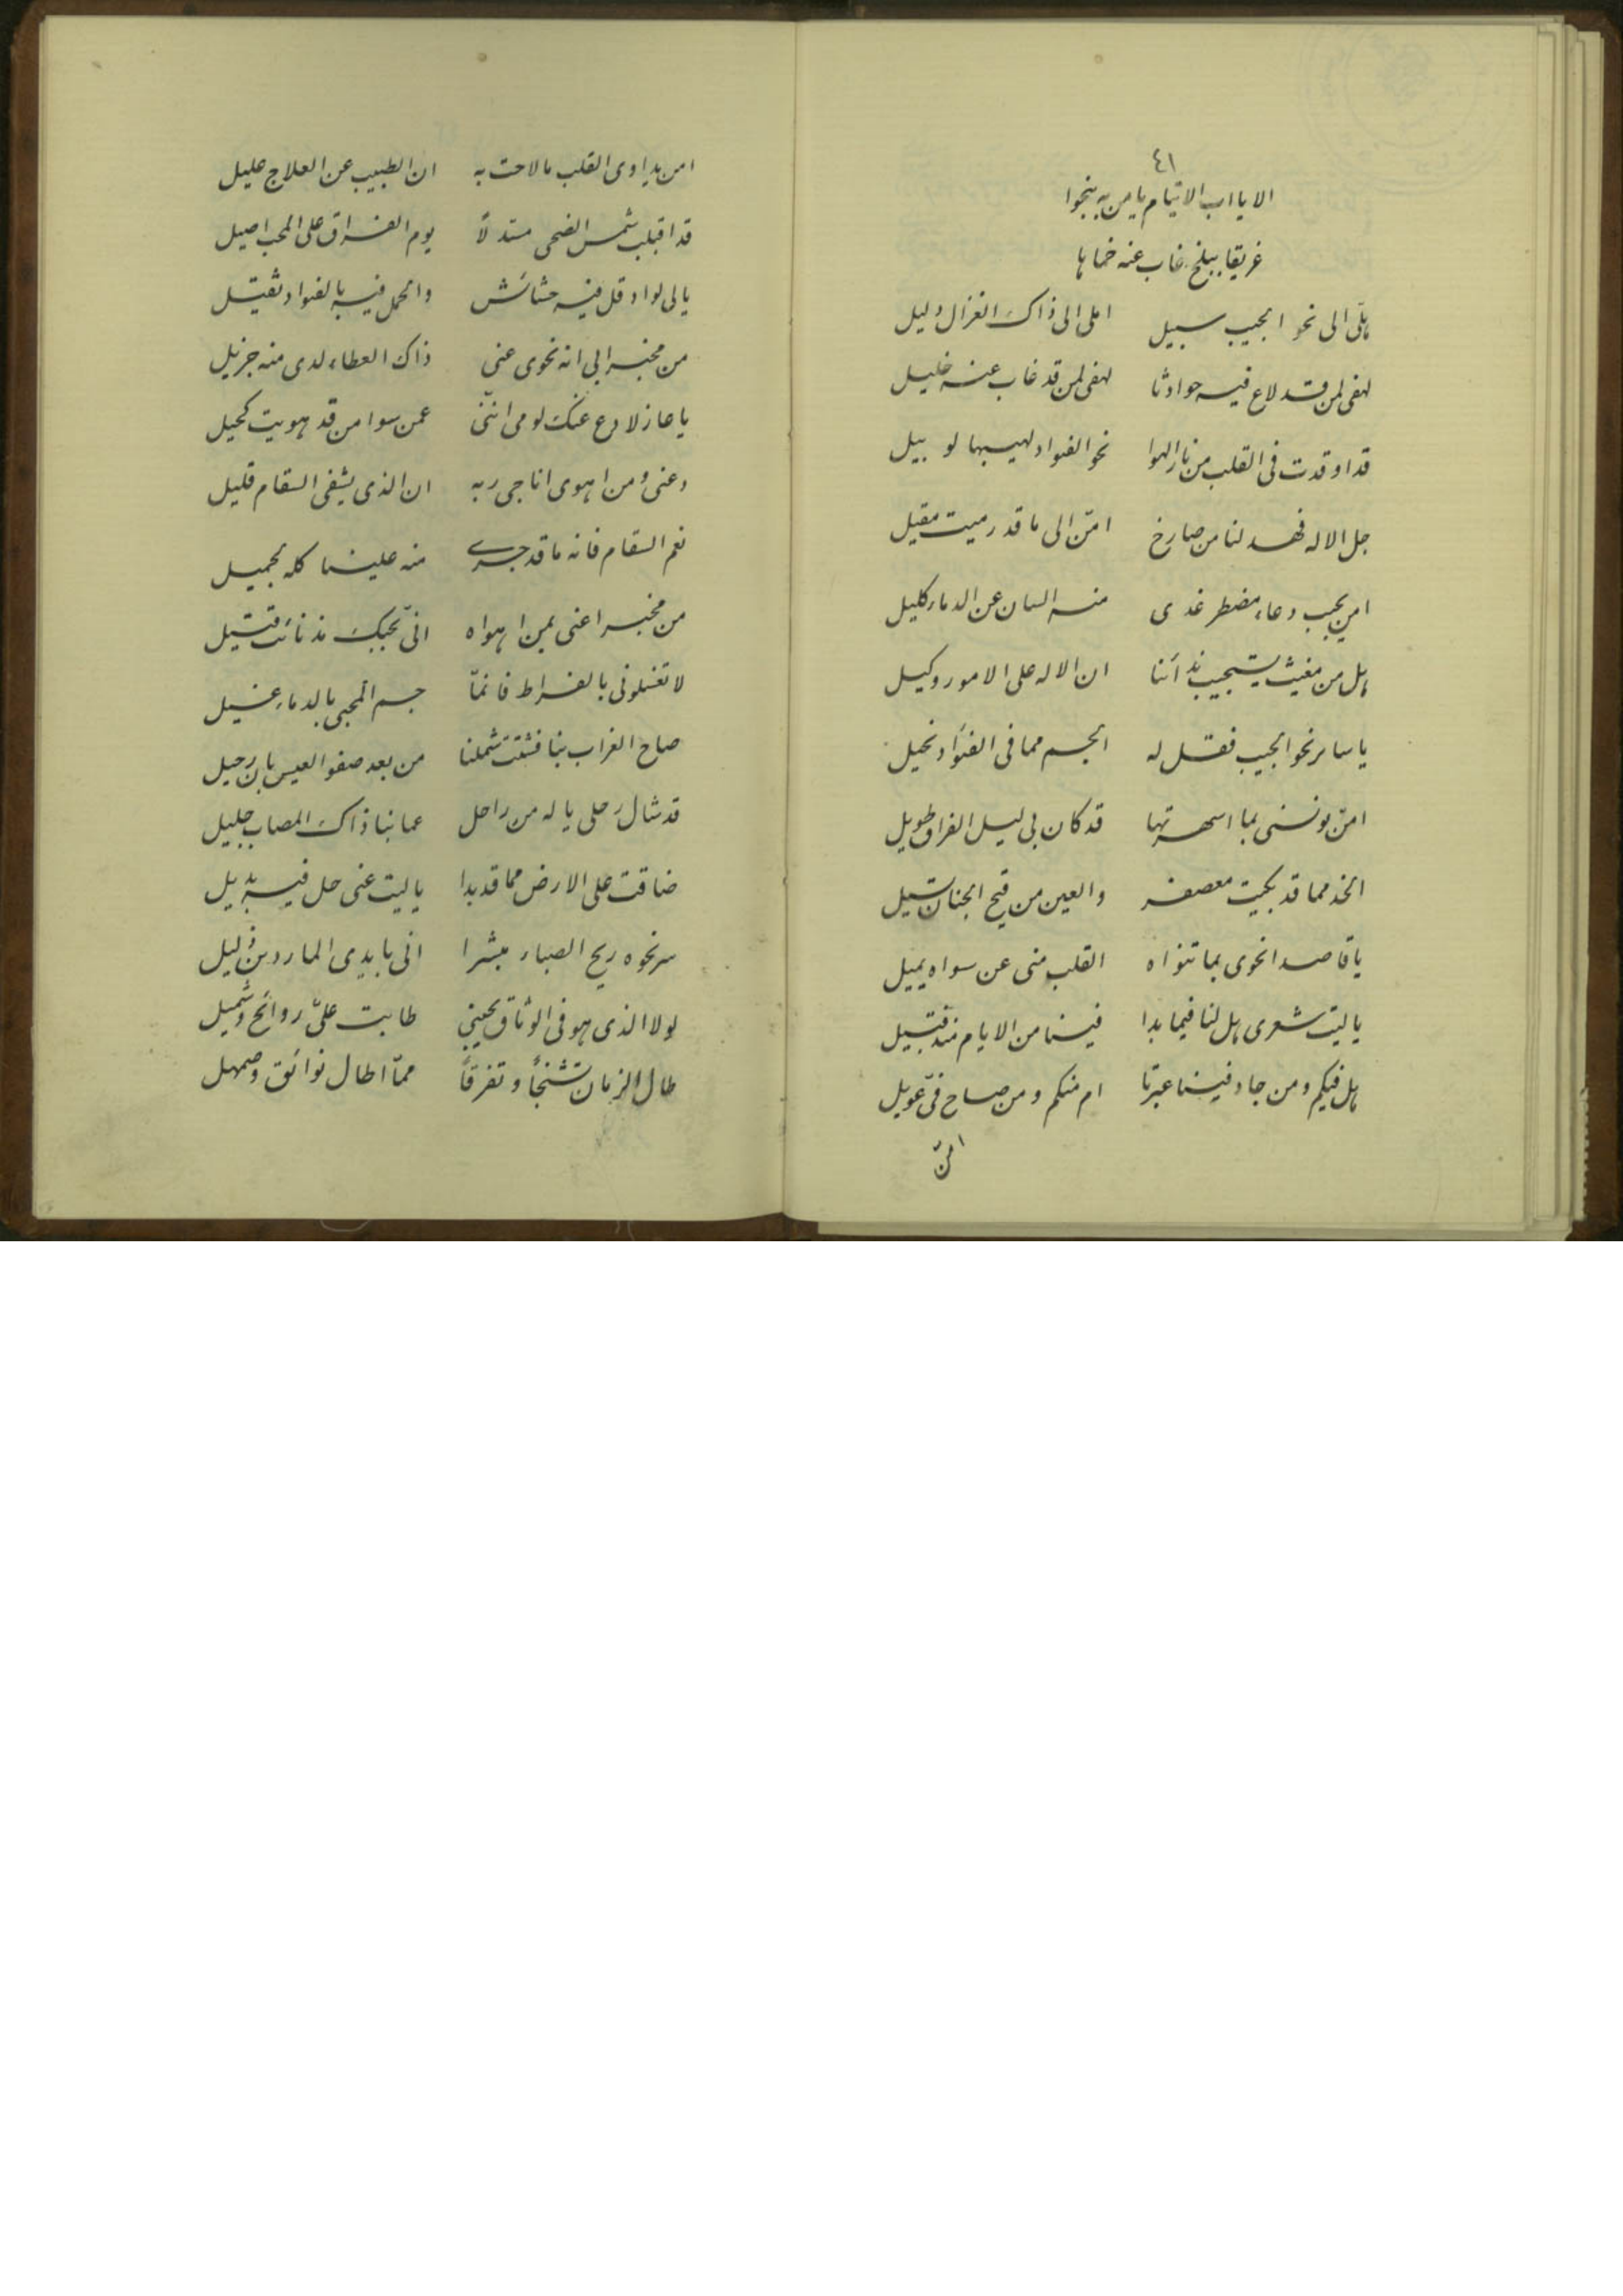 ٤١
الا يا اب الايتام يا من به ينجوا
غريقا ببلخ غاب عنه خماها
هل الى نحو الحبيب سبيل املى الى ذاك الغزال دليل
لهفى لمن قد لاع فيه حوادثا لهفى لمن قد غاب عنه خليل
قد اوقدت فى القلب من نار الهوا نحو الفواد لهيبها لو بيل
جل الاله فهد لنا من صارخ امن الى ما قد رميت مقيل
امن يجيب دعاء مضطر غدى منه السان عن الدعاء كليل
هل من مغيث يستجيب ندائنا ان الاله على الامور وكيل
يا سائر نحو الحبيب فقل له الجسم مما فى الفؤاد نحيل
امن يونسنى بما اسهرتها قد كان بى ليل الفراق طويل
الخد مما قد بكيت معصفر والعين من قيح الجنان تسيل
يا قاصدا نحوى بما تنواه القلب منى عن سواه يميل
يا ليت شعرى هل لنا فيما بدا فينا من الايام منه قتيل
هل فيكم ومن جاد فينا عبرتا ام منكم ومن صاح فىّ عويل
امن
امن يداوى القلب ما لاحت به ان الطبيب عن العلاج عليل
قد اقبلت شمس الضحى مستدلاً يوم الفراق على المحب اصيل
يا لى لواد قل فيه حشائش والحمل فيه بالفواد ثقيل
من مخبر الى انه نحوى عنى ذاك العطاء لدى منه جزيل
يا عاذلا دع عنك لومى اننى عمن سوا من قد هويت كحيل
دعنى ومن اهوى اناجى ربه ان الذى يشفى السقام قليل
نعم السقام فانه ما قد جرى منه علينا كله بجميل
من مخبرا عنى بمن اهواه انى بحبك مذ نائت قتيل
لا تغسلونى بالفراط فانمّا جسم المحبى بالدماء غسيل
صاح الغراب بنا فشتت شملنا من بعد صفو العيس بان رحيل
قد شال رحلى يا له من راحل عما بنا ذاك المصاب جليل
ضاقت على الارض مما قد بدا يا ليت عنى حل فيه بديل
سر نحوه ريح الصباء مبشرا انى بايدى الماردين ذليل
لولا الذى هو فى الوثاق يحينى طابت علىّ روائح وشميل
طال الزمان تشنجاً وتفرقاً ممّا اطال نوائق وصهيل